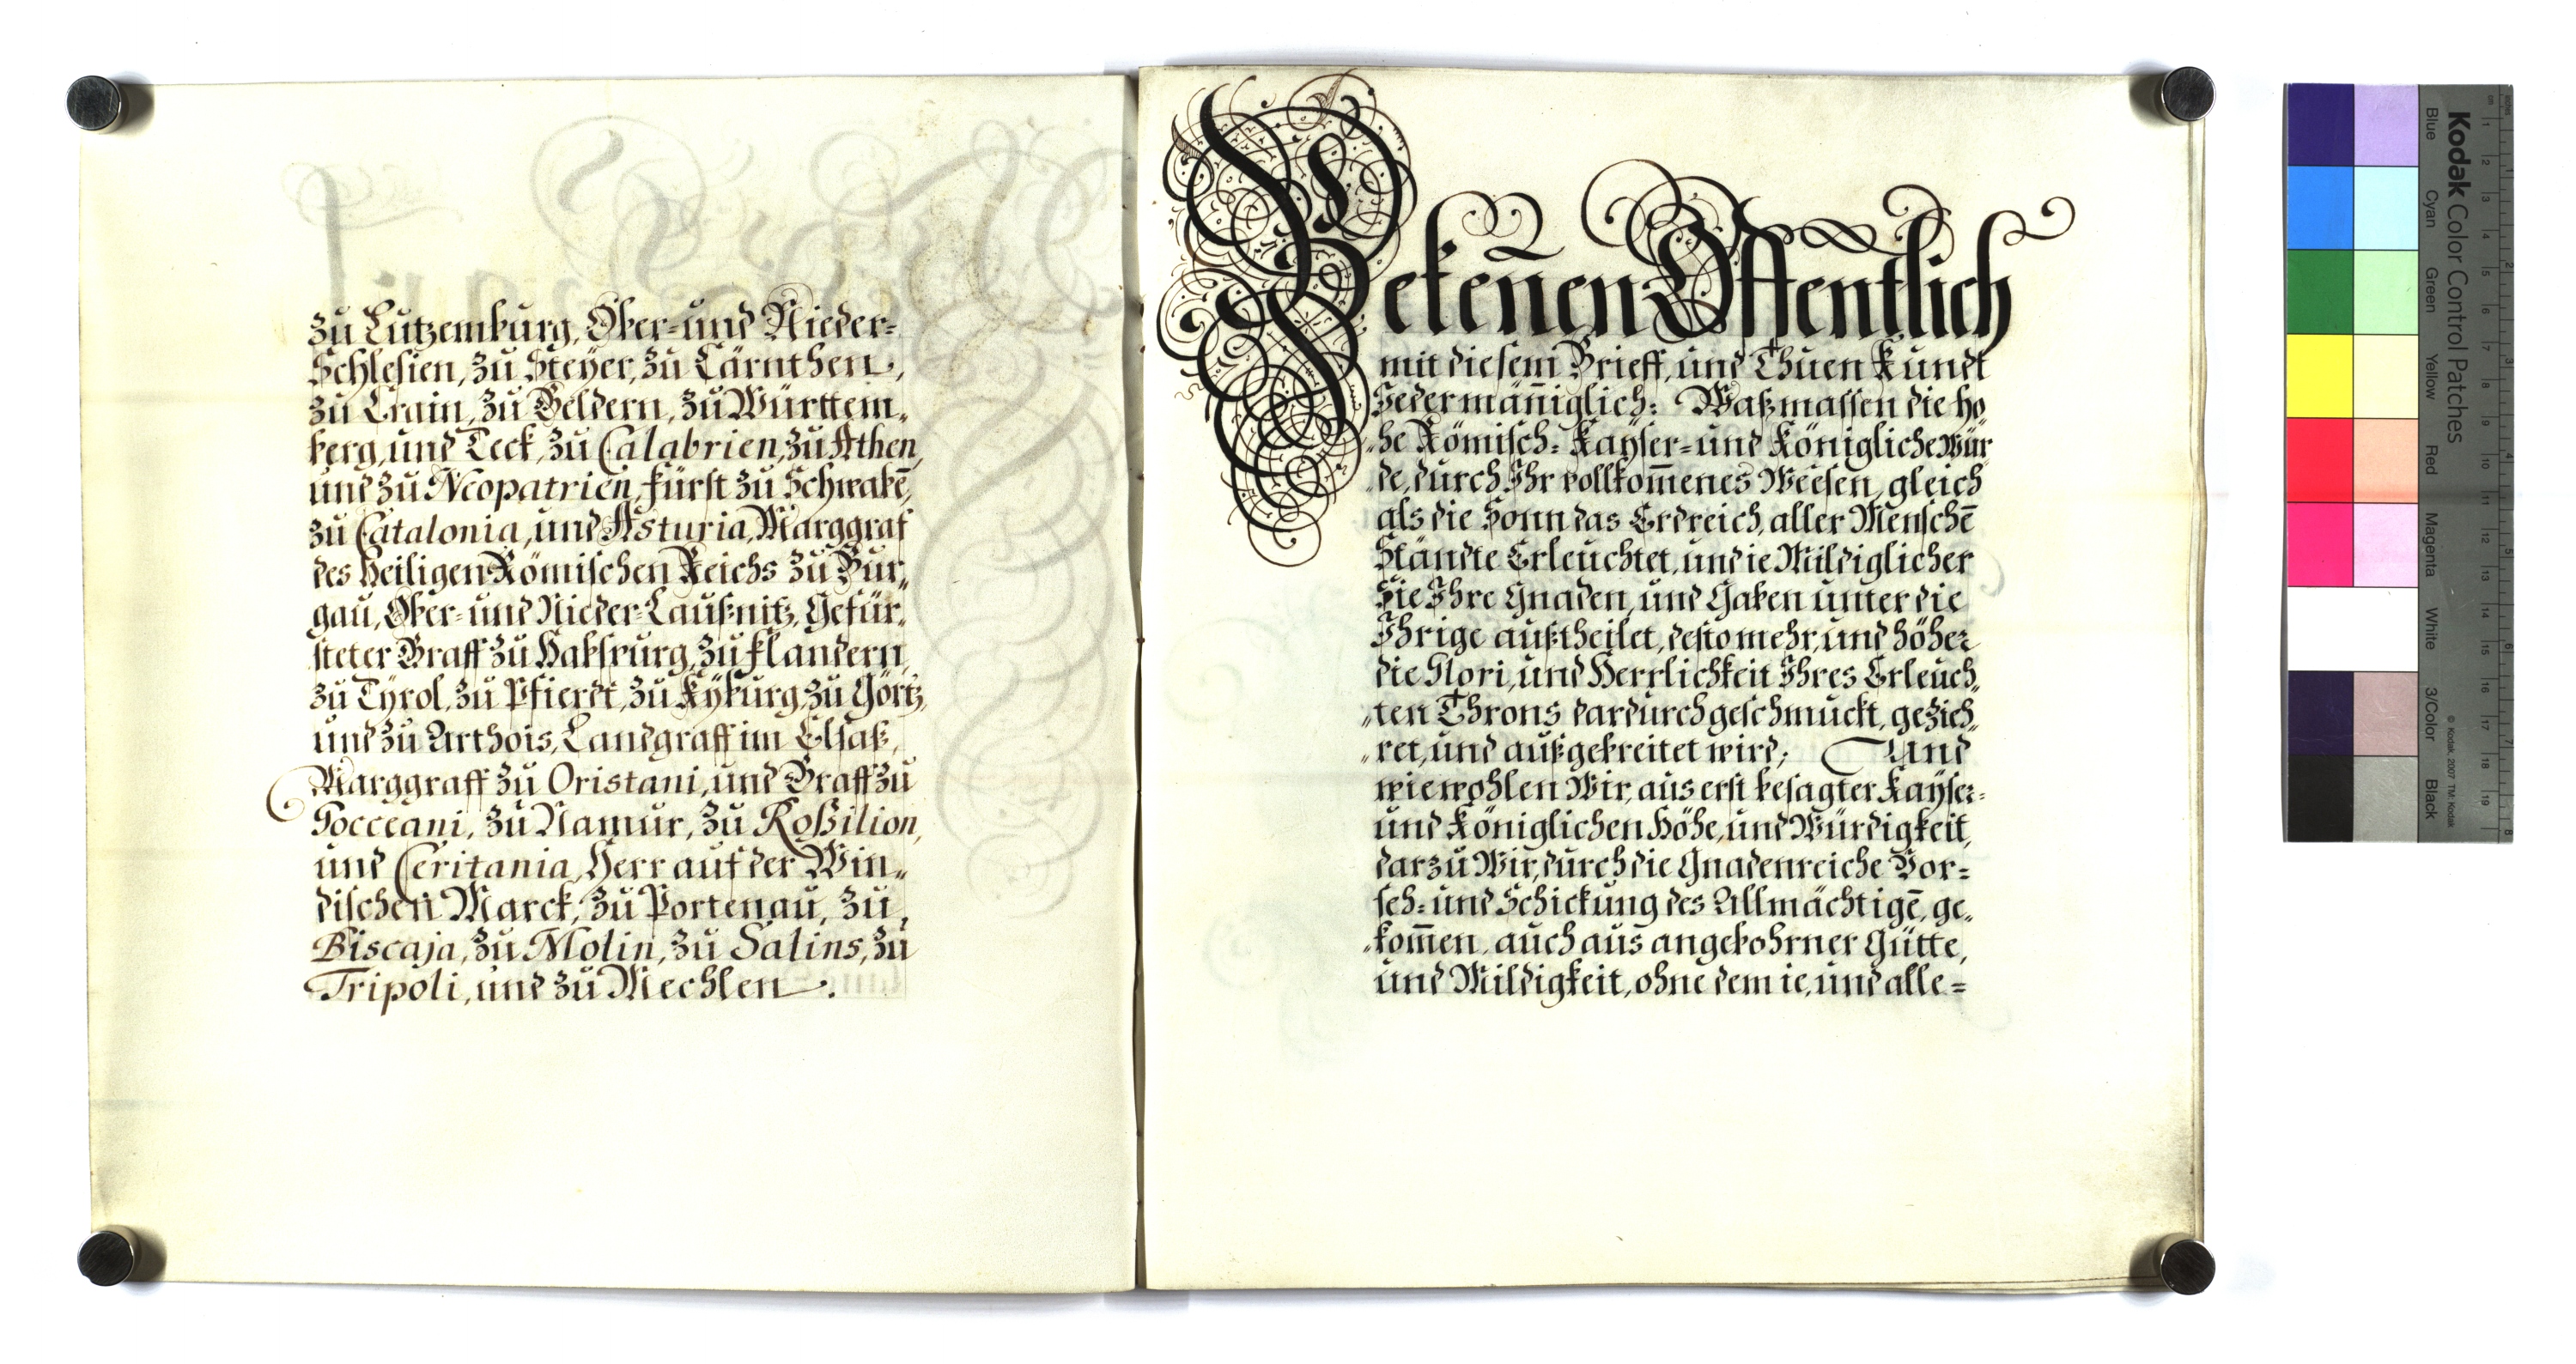 zu Lützemburg, Ober= und Nieder=
Schlesien, zu Steÿer, zu Cärnthen,
zu Crain, zu Geldern, zu Württem„
berg, und Teck, zu Calabrien, zu Athen,
und zu Neopatrien, Fürst zu Schwabē,
zu Catalonia, und Asturia, Marggraf
des Heiligen Römischen Reichs zu Bur„
gau, Ober= und Nieder=Laußnitz, Gefür„
steter Graff zu Habspurg, zu Flandern,
zu Tÿrol, zu Pfierdt, zu Kÿburg, zu Görtz,
und zu Arthois, Landgraff im Elsaß,
Marggraff zu Oristani, und Graff zu
Gocceani, zu Namur, zu Roßilion,
und Ceritania, Herr auf der Win„
dischen Marck, zu Portenau, zu
Biscaja, zu Molin, zu Salins, zu
Tripoli, und zu Mechlen.
Bekeñen Öffentlich
mit diesem Brieff, und Thuen Kundt
Jedermäñiglich: Waßmassen die ho
„he Römisch= Kaÿser= und Königliche Wür
de, durch Ihr vollkom̄enes Weesen, gleich
als die Sonn das Erdreich, aller Menschē
Ständte Erleuchtet, und ie Mildiglicher
Sie Ihre Gnaden, und Gaben unter die
Ihrige außtheilet, desto mehr, und höher
die Glori, und Herrlichkeit Ihres Erleuch„
„ten Throns dardurch geschmuckt, gezieh„
„ret, und außgebreitet wird; Und
wiewohlen Wir, aus erst besagter Kaÿser=
und Königlichen Höhe, und Würdigkeit,
darzu Wir, durch die Gnadenreiche Vor=
seh= und Schickung des Allmächtigē, ge„
„kom̄en, auch aus angebohrner Gütte,
und Mildigkeit, ohne dem ie, und alle=
Kodak Color Control Patches
Blue
Cyan
Green
Yellow
Red
Magenta
White
3/Color
Black
© Kodak, 2007 TM: Kodak
cm 1 2 3 4 5 6 7 8 9 10 11 12 13 14 15 16 17 18 19
inches 1 2 3 4 5 6 7 8